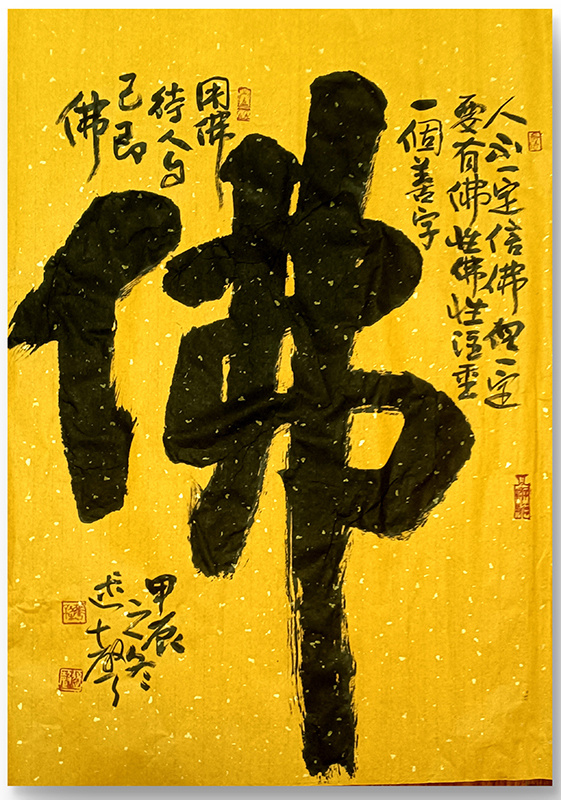 人不一定信佛但一定
要有佛性佛性注重
一個善字
佛
用佛
待人自
己即
佛
甲辰
之冬